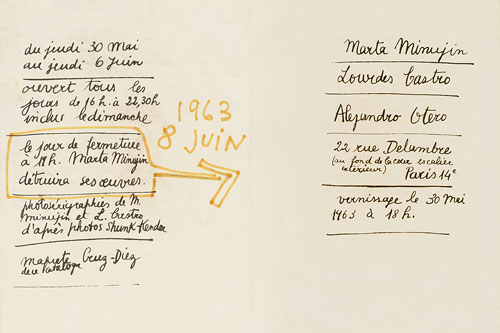 du jeudi 30 Mai
au jeudi 6 Juin
ouvert tous les
jours de 16 h. à 22,30h
inclus le dimanche
le jour de fermeture
à 19h. Marta Minujin
détruira ses œuvres.
photosérigraphies de M.
Minujin et L. Castro
d'après photos Shunk-Kender
maquette Cruz-Diez
de ce Catalogue
1963
8 JUIN
Marta Minujin
Lourdes Castro
Alejandro Otero
22 rue Delambre
(au fond de la cour escalier
intérieur) Paris 14e
vernissage le 30 Mai
1963 à 18h.